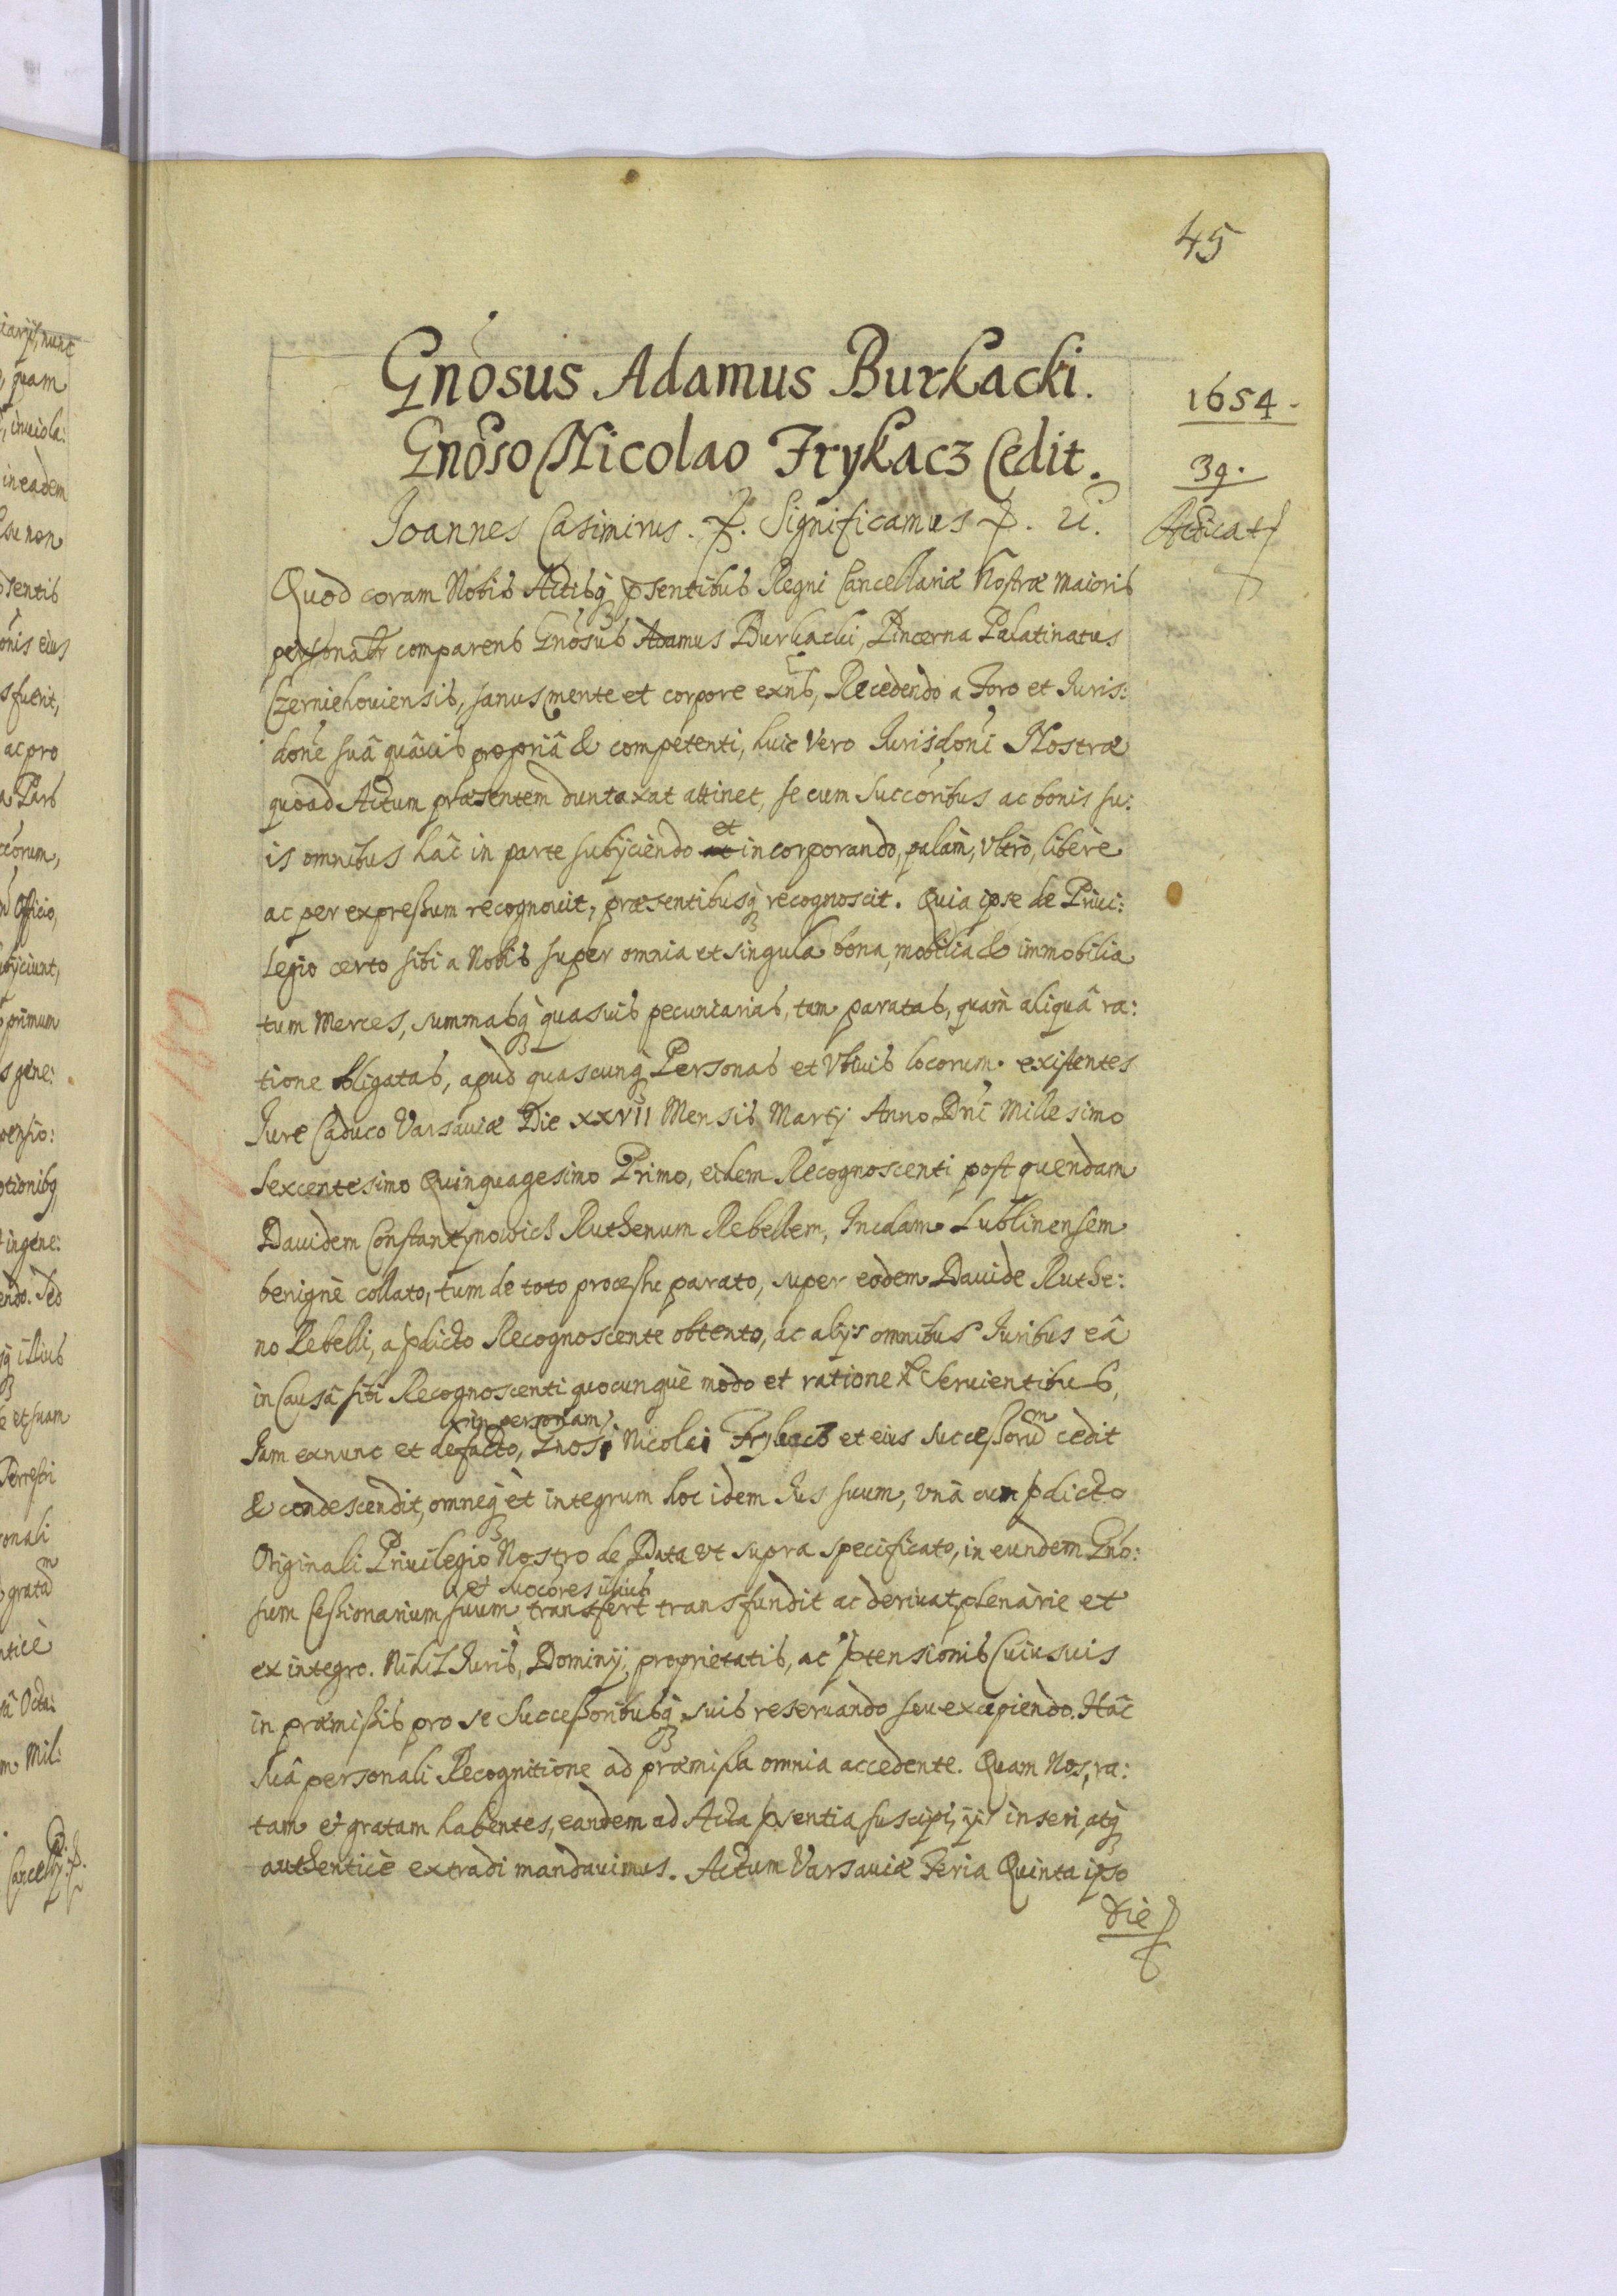 45
Gnosus Adamus Burkacki.
Gnoso Nicolao Frykacz Cedit.
1654.
39.
Ioannes Casimirus. Significamus
Quod coram Nobis Actisq psentibus Regni Cancellariæ Nostræ Maioris
personalr comparens Gnosus Adamus Burkacki, Pincerna Palatinatus
Czerniehouiensis, sanus mente et corpore exns, Recedendo a Foro et Iuris:
done suâ quâuis propriâ & competenti, huic vero Jurisdoni Nostræ
quoad Actum præsentem duntaxat attinet, se cum Succoribus ac bonis su:
is omnibus hâc in parte subijciendo et incorporando, palàm, vltrò, liberè
ac per expressum recognouit, præsentibusq recognoscit. Quia ipse de Priui:
legio certo sibi a Nobis super omnia et singula bona, mobilia & immobilia
tum Merces, summasq quasuis pecuniarias, tam paratas, quàm aliquâ ra:
tione obligatas, apud quascunq Personas et vbiuis locorum existentes
Iure Caduco Varsauiæ Die XXVII Mensis Martij Anno Dni Millesimo
Sexcentesimo Quinquagesimo Primo, eidem Recognoscenti post quendam
Dauidem Constantynowicz Ruthenum Rebellem, Incolam Lublinensem
benignè collato, tum de toto processu parato, super eodem Dauide Ruthe:
no Rebelli, a pdicto Recognoscente obtento, ac alijs omnibus Iuribus eâ
in Causâ sibi Recognoscenti quocunque modo et ratione Seruientibus,
in personam
Iam exnunc et defacto, Gnosi Nicolai Frykacz et eius Successorum cedit
& condescendit, omneq et integrum hoc idem Ius suum, vnà cum pdicto
Originali Priuilegio Nostro de Data vt supra specificato, in eundem Gno:
et succores
sum Cessionarium suum transfert transfundit ac deriuat, plenàrie et
ex integro. Nihil Iuris, Dominij, proprietatis, ac ptensionis Cuiusuis
in præmissis pro se Successoribusq suis reseruando seu excipiendo. Hâc
Suâ personali Recognitione ad præmissa omnia accedente. Quam Nos, ra:
tam et gratam habentes, eandem ad Acta psentia suscipi, inseri, atq
authenticè extradi mandauimus. Actum Varsauiæ Feria Quinta ipso
die